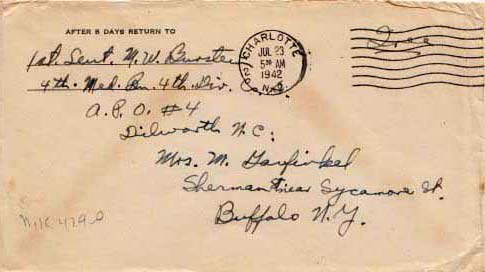 AFTER 5 DAYS RETURN TO
1st. Sent. M. W. Burstein
4th. Med. Bn. 4th. Div.
A.P.O. #4
Dilworth N.C.
CHARLOTTE
JUL 23
5 30 AM
1942
N.C.
Free
Mrs. M. Garfinkel
Sherman near Sycamore St.
Buffalo N.Y.